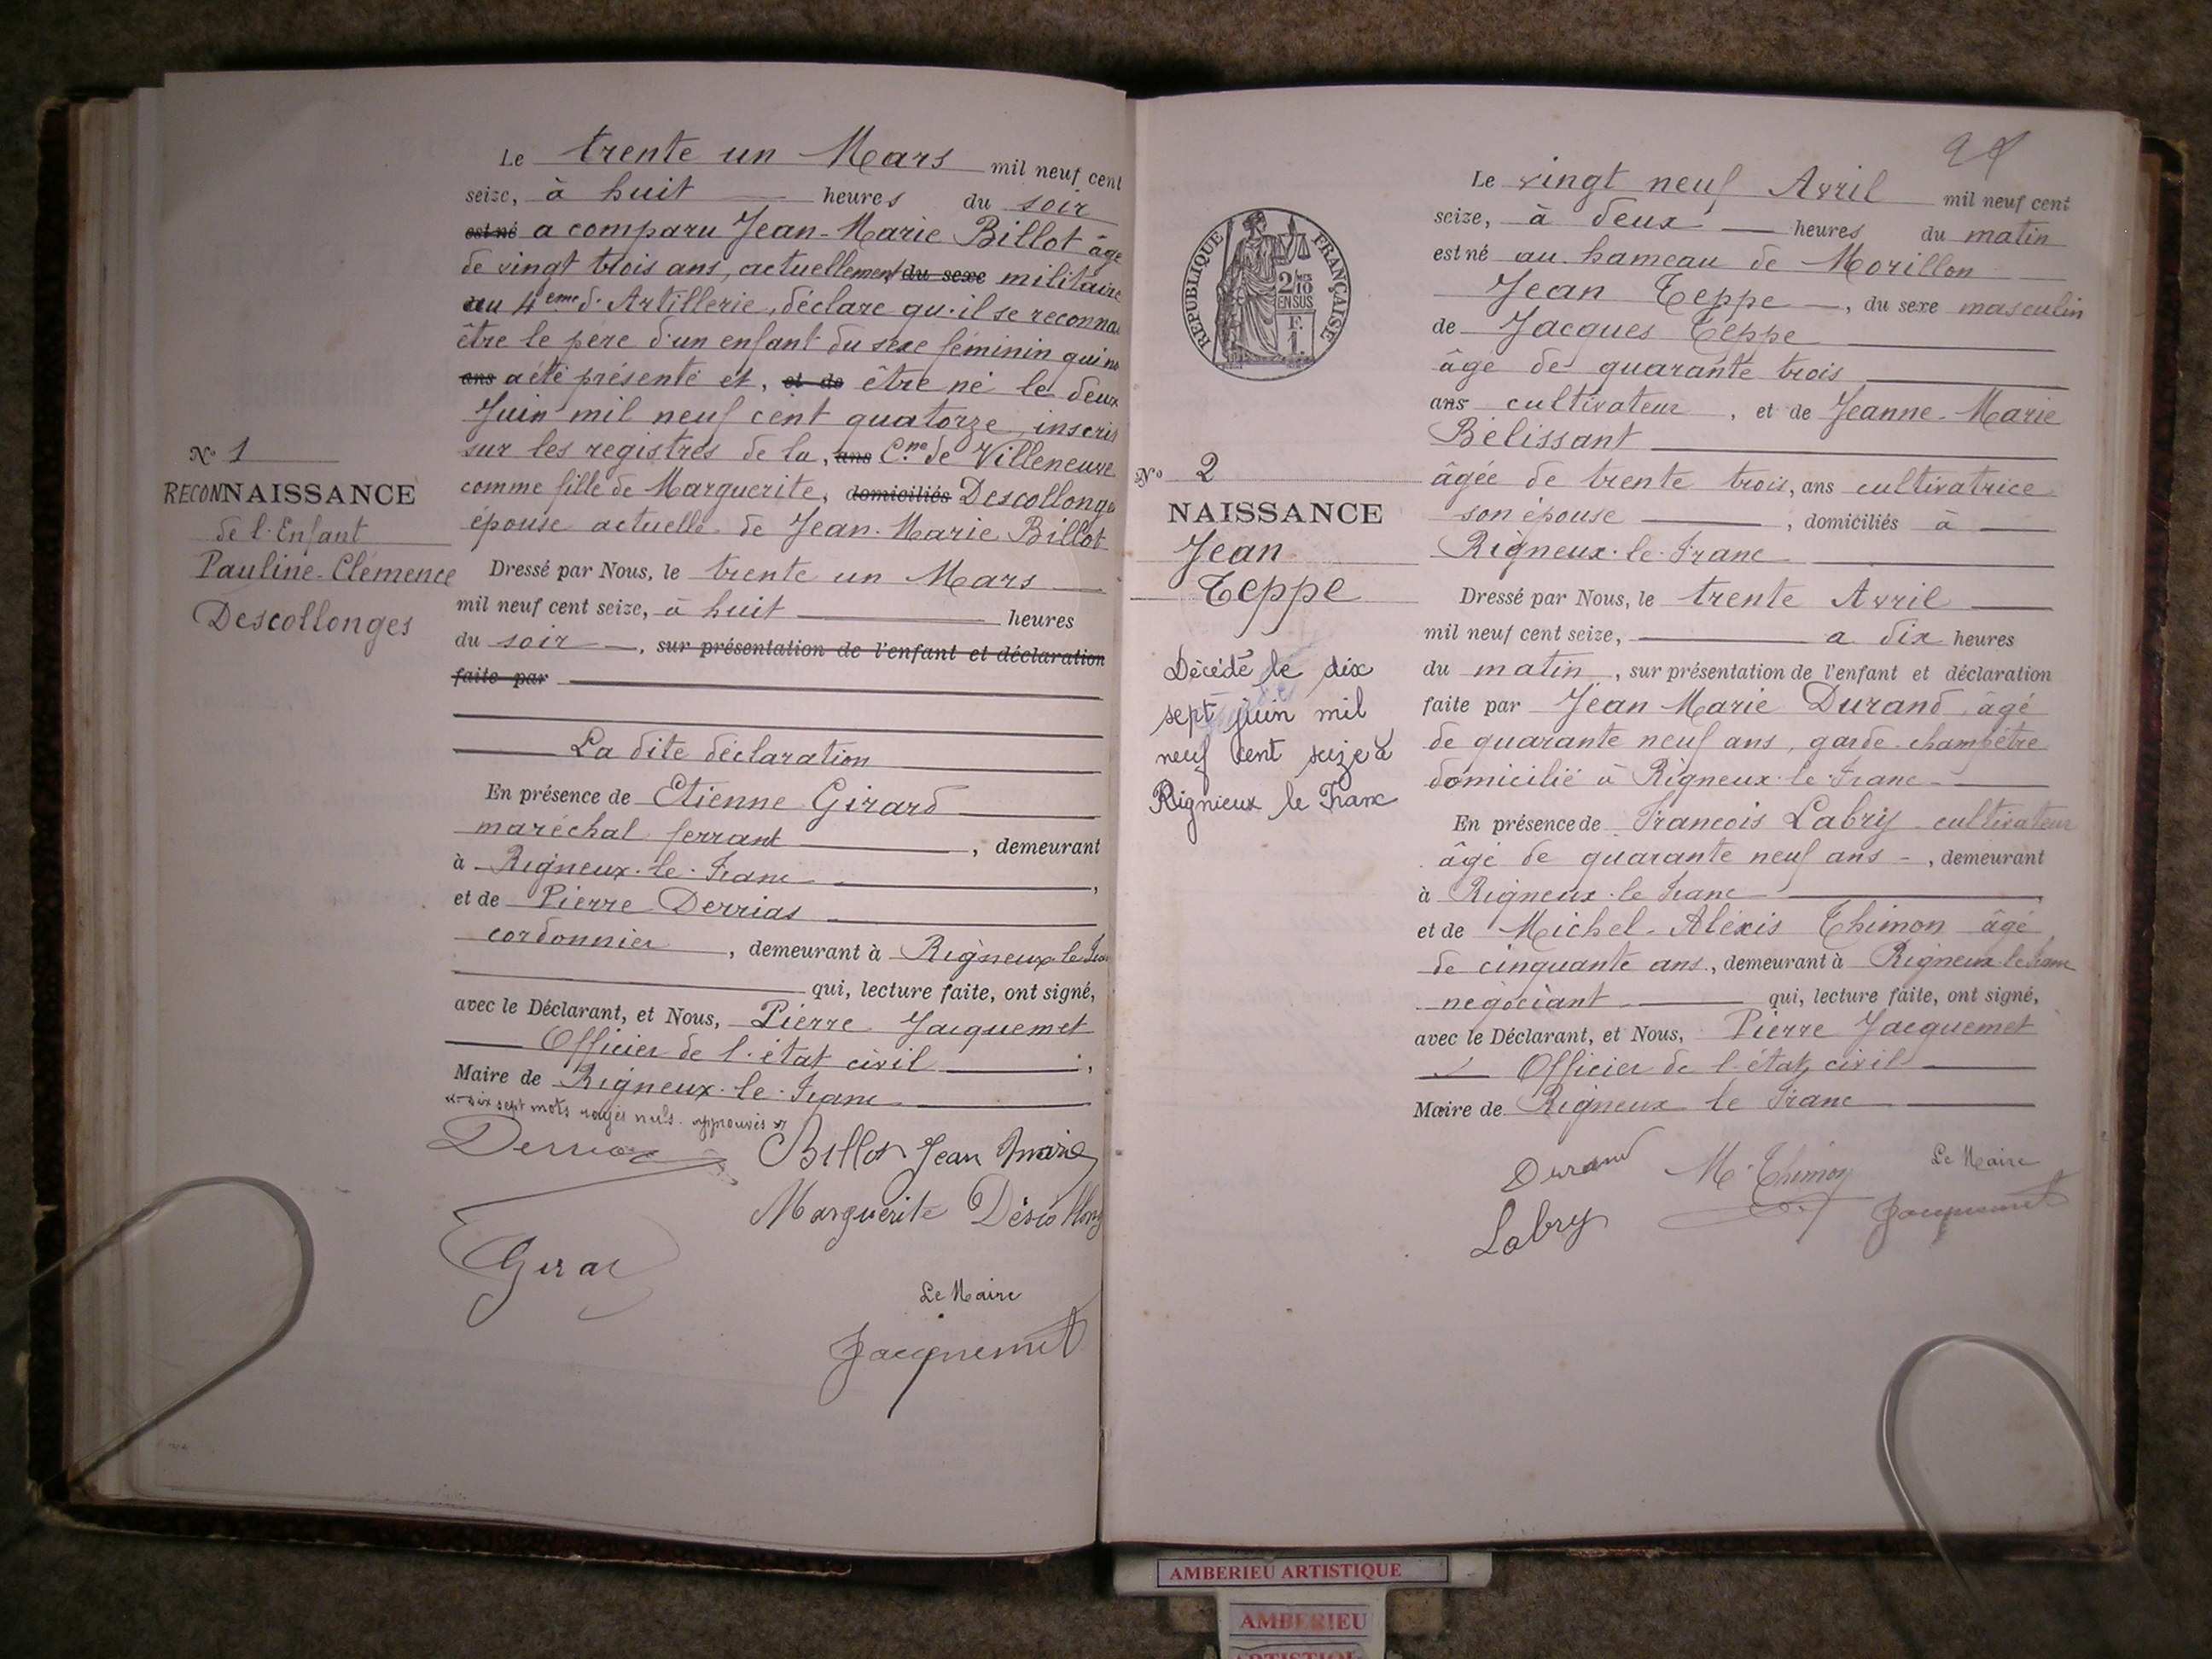 Le trente un Mars mil neuf cent
seize, à huit heures du soir
est né a comparu Jean-Marie Billot âgé
de vingt trois ans, actuellement du sexe militaire
au 4eme d'Artillerie, déclare qu'il se reconna
être le père d'un enfant du sexe féminin qui
ans a été présenté et, et de être né le deux
Juin mil neuf cent quatorze, inscris
sur les registres de la, ans Cne de Villeneuve
comme fille de Marguerite, domiciliés Descollonge
épouse actuelle de Jean-Marie Billot
No 1
RECONNAISSANCE
de l'Enfant
Pauline-Clémence
Descollonges
Dressé par Nous, le trente un Mars
mil neuf cent seize, à huit heures
du soir, sur présentation de l'enfant et déclaration
faite par
La dite déclaration
En présence de Etienne Girard
maréchal ferrant, demeurant
à Rigneux-le-Franc,
et de Pierre Derrias
cordonnier, demeurant à Rigneux le
qui, lecture faite, ont signé,
avec le Déclarant, et Nous, Pierre Jacquemet
Officier de l'état civil,
Maire de Rigneux-le-Franc
dix sept mots rayés nuls approuvés
Derrias Billot Jean Marie
Marguerite Descollong
Girar
Le Maire
Jacquemet
28
Le vingt neuf Avril mil neuf cent
seize, à deux heures du matin
est né au hameau de Morillon
Jean Teppe, du sexe masculin
de Jacques Teppe
âgé de quarante trois
ans cultivateur, et de Jeanne-Marie
Bélissant
âgée de trente trois, ans cultivatrice
son épouse, domiciliés à
Rigneux-le-Franc
RÉPUBLIQUE FRANÇAISE
2/10 EN SUS
F. 1.
No 2
NAISSANCE
Jean
Teppe
Décédé le dix
sept juin mil
neuf cent seize à
Rignieux le Franc
Dressé par Nous, le trente Avril
mil neuf cent seize, a dix heures
du matin, sur présentation de l'enfant et déclaration
faite par Jean Marie Durand, âgé
de quarante neuf ans, garde-champêtre
domicilié à Rigneux-le-Franc
En présence de Francois Labry cultivateur
âgé de quarante neuf ans -, demeurant
à Rigneux-le Franc
et de Michel-Aléxis Thimon âgé
de cinquante ans, demeurant à Rigneux-le Franc
négociant qui, lecture faite, ont signé,
avec le Déclarant, et Nous, Pierre Jacquemet
Officier de l'état civil
Maire de Rigneux le Franc
Durand M. Thimon Le Maire
Labry Jacquemet
AMBERIEU ARTISTIQUE
AMBERIEU
ARTISTIQUE